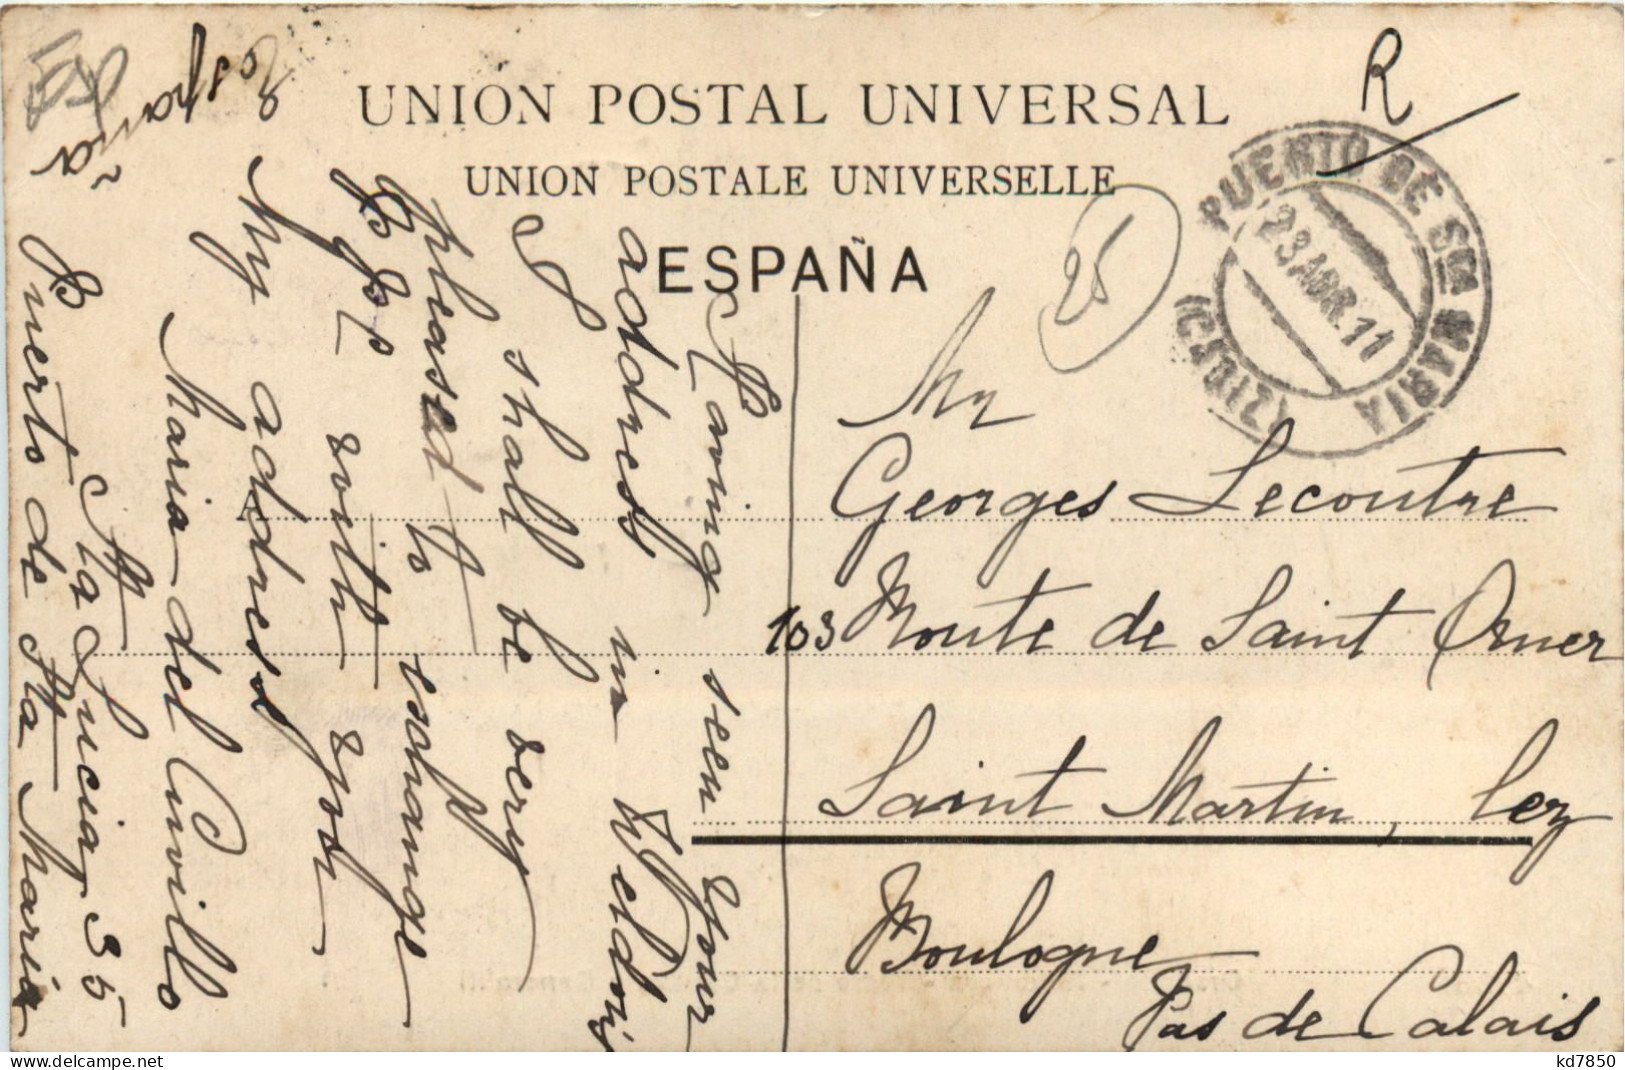 UNION POSTAL UNIVERSAL
UNION POSTALE UNIVERSELLE
ESPAÑA
R
25
PUERTO DE STA MARIA
(CADIZ)
23 ABR. 11
Mr
Georges Lecoutre
103 Route de Saint Omer
Saint Martin, lez
Boulogne
Pas de Calais
Having seen your
address in Weldon's
I shall be very
pleased to exchange
P. P. C. with you
My address
Maria del Cuvillo
Sta Lucia, 35
Puerto de Sta Maria
España
www.delcampe.net
kd7850